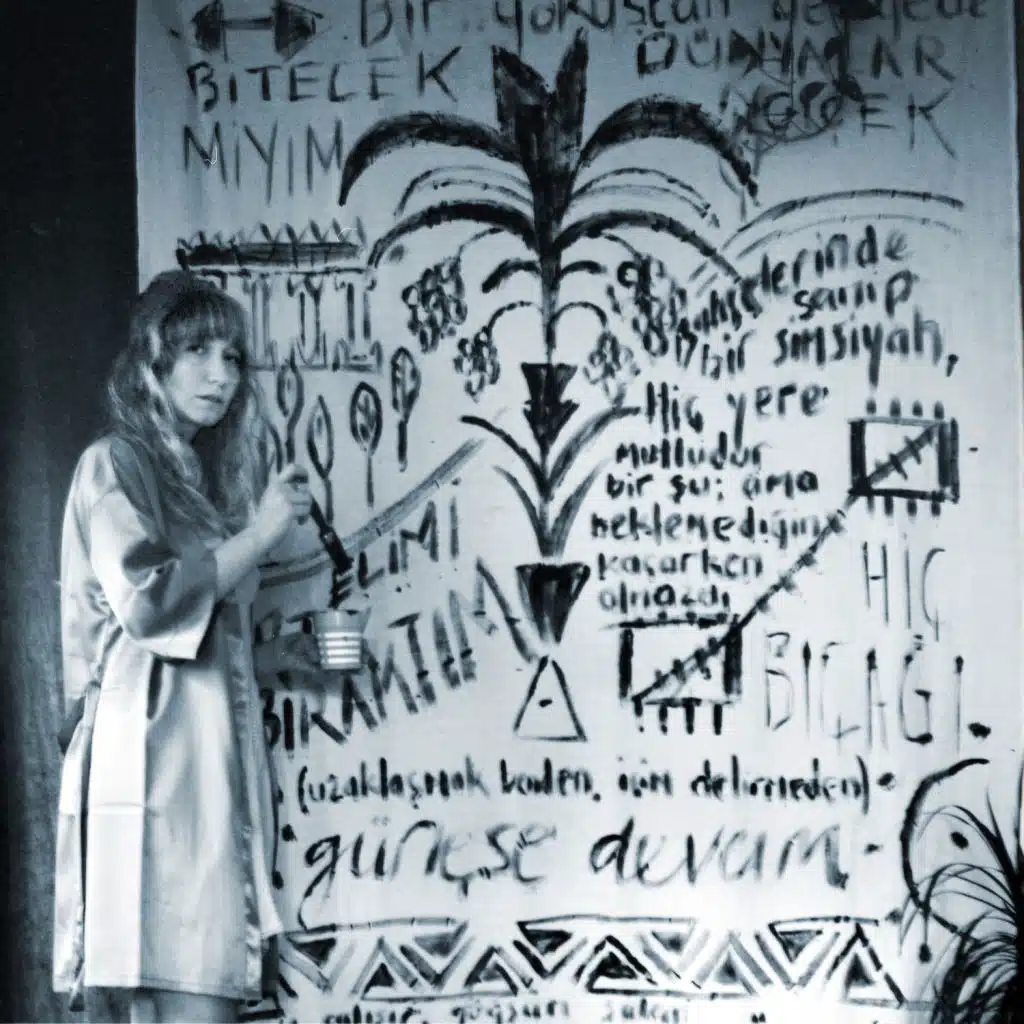 Bir yokuştan
DÜNYALAR
BİTECEK
MİYİM
bahçelerinde
sanıp
bir simsiyah,
Hiç yere
mutludur
bir şu; ama
beklemediğin
kaçarken
olmazdı
ELİMİ
BIRAKTIM
HİÇ
BIÇAĞI.
(uzaklaşmak benden, için delirmeden)
güneşe devam